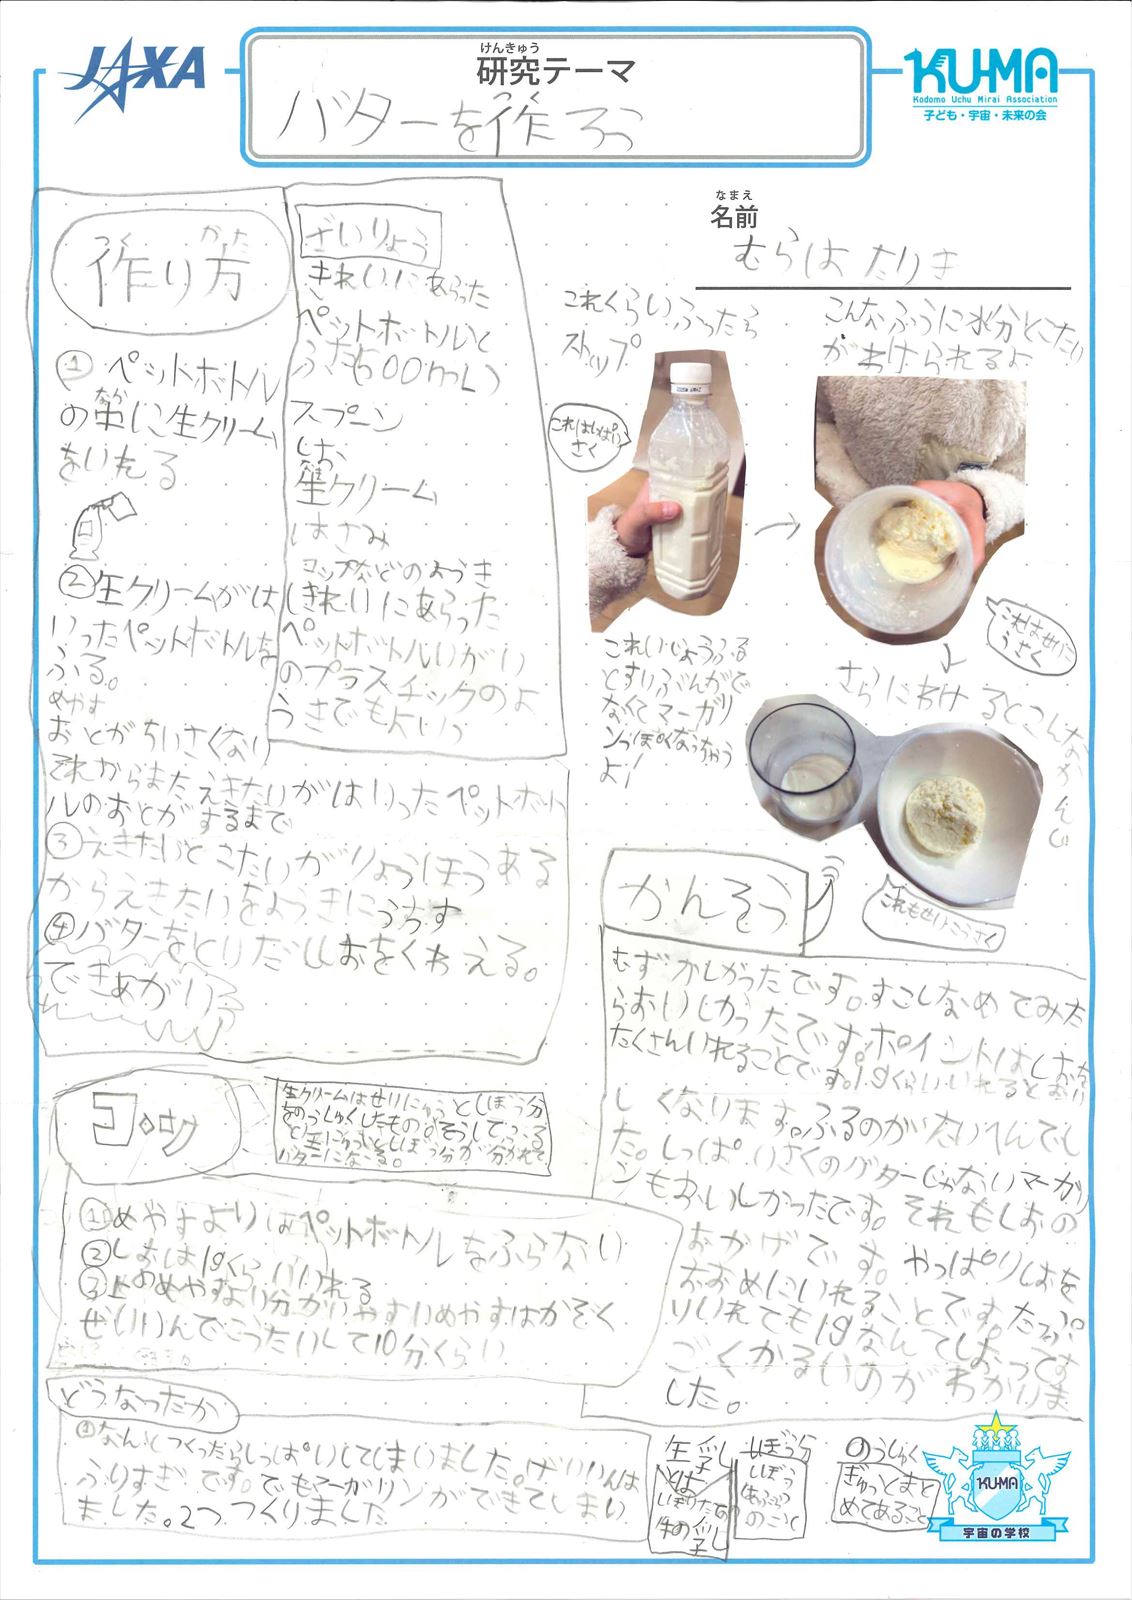 JAXA
けんきゅう
研究テーマ
つく
バターを作ろう
KU-MA
Kodomo Uchu Mirai Association
子ども・宇宙・未来の会
なまえ
名前
むらはたりき
つく かた
作り方
① ペットボトル
なか
の中に生クリーム
をいれる
②生クリームがは
いったペットボトルを
ふる。
めやす
おとがちいさくなり
それからまたえきたいがはいったペットボト
ルのおとがするまで
③えきたいとこたいがりょうほうある
からえきたいをようきにうつす
④バターをとりだししおをくわえる。
できあがり
ざいりょう
きれいにあらった
ペットボトルと
ふた(500mL)
スプーン
しお
生クリーム
はさみ
コップなどのようき
(きれいにあらった
ペットボトルいがい
のプラスチックのよ
うきでもよい)
これくらいふったら
ストップ
これはしっぱい
さく
こんなふうに水分とこたい
がわけられるよ
これはせいこ
うさく
これいじょうふる
とすいぶんがで
なくてマーガリ
ンっぽくなっちゃう
よ!
さらにわけるとこんなかんじ
これもせいこうさく
かんそう
むずかしかったです。すこしなめてみた
らおいしかったです。ポイントはしおを
たくさんいれることです。1gくらいいれるとおい
しくなります。ふるのがたいへんでし
た。しっぱいさくのバターじゃないマーガリ
ンもおいしかったです。それもしおの
おかげです。やっぱりしおを
おおめにいれることです。たっぷ
りいれても1gなんてしおってす
ごくかるいのがわかりま
した。
コツ
生クリームはせいにゅうとしぼう分
をのうしゅくしたもの。そうしてふる
と生にゅうとしぼう分が分かれて
バターになる。
①めやすよりはペットボトルをふらない
②しおは1gくらいいれる
③上のめやすより分かりやすいめやすはかぞく
ぜいいんでこうたいして10分くらい
どうなったか
①なんこつくったらしっぱいしてしまいました。げんいんは
ふりすぎです。でもマーガリンができてしまい
ました。2つつくりました
生乳
とは
しぼりたての
牛の乳
しぼう分
しぼう
(あぶら)
のこと
のうしゅく
ぎゅっとまと
めてあること
KU-MA
宇宙の学校